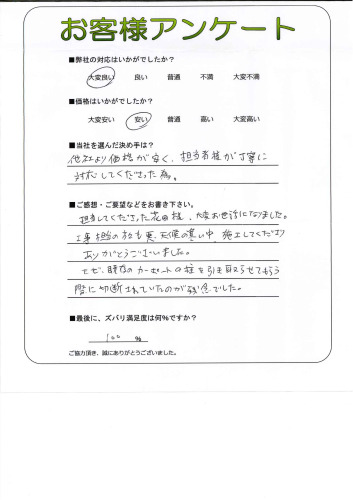 お客様アンケート
■弊社の対応はいかがでしたか?
大変良い 良い 普通 不満 大変不満
■価格はいかがでしたか?
大変安い 安い 普通 高い 大変高い
■当社を選んだ決め手は?
他社より価格が安く、担当者様が丁寧に
対応してくださった為。
■ご感想・ご要望などをお書き下さい。
担当してくださった花田様、大変お世話になりました。
工事担当の方も悪天候の寒い中、施工してくださり
ありがとうございました。
ただ、既存のカーポートの柱を引き取らせてもらう
際に切断されていたのが残念でした。
■最後に、ズバリ満足度は何%ですか?
100 %
ご協力頂き、誠にありがとうございました。